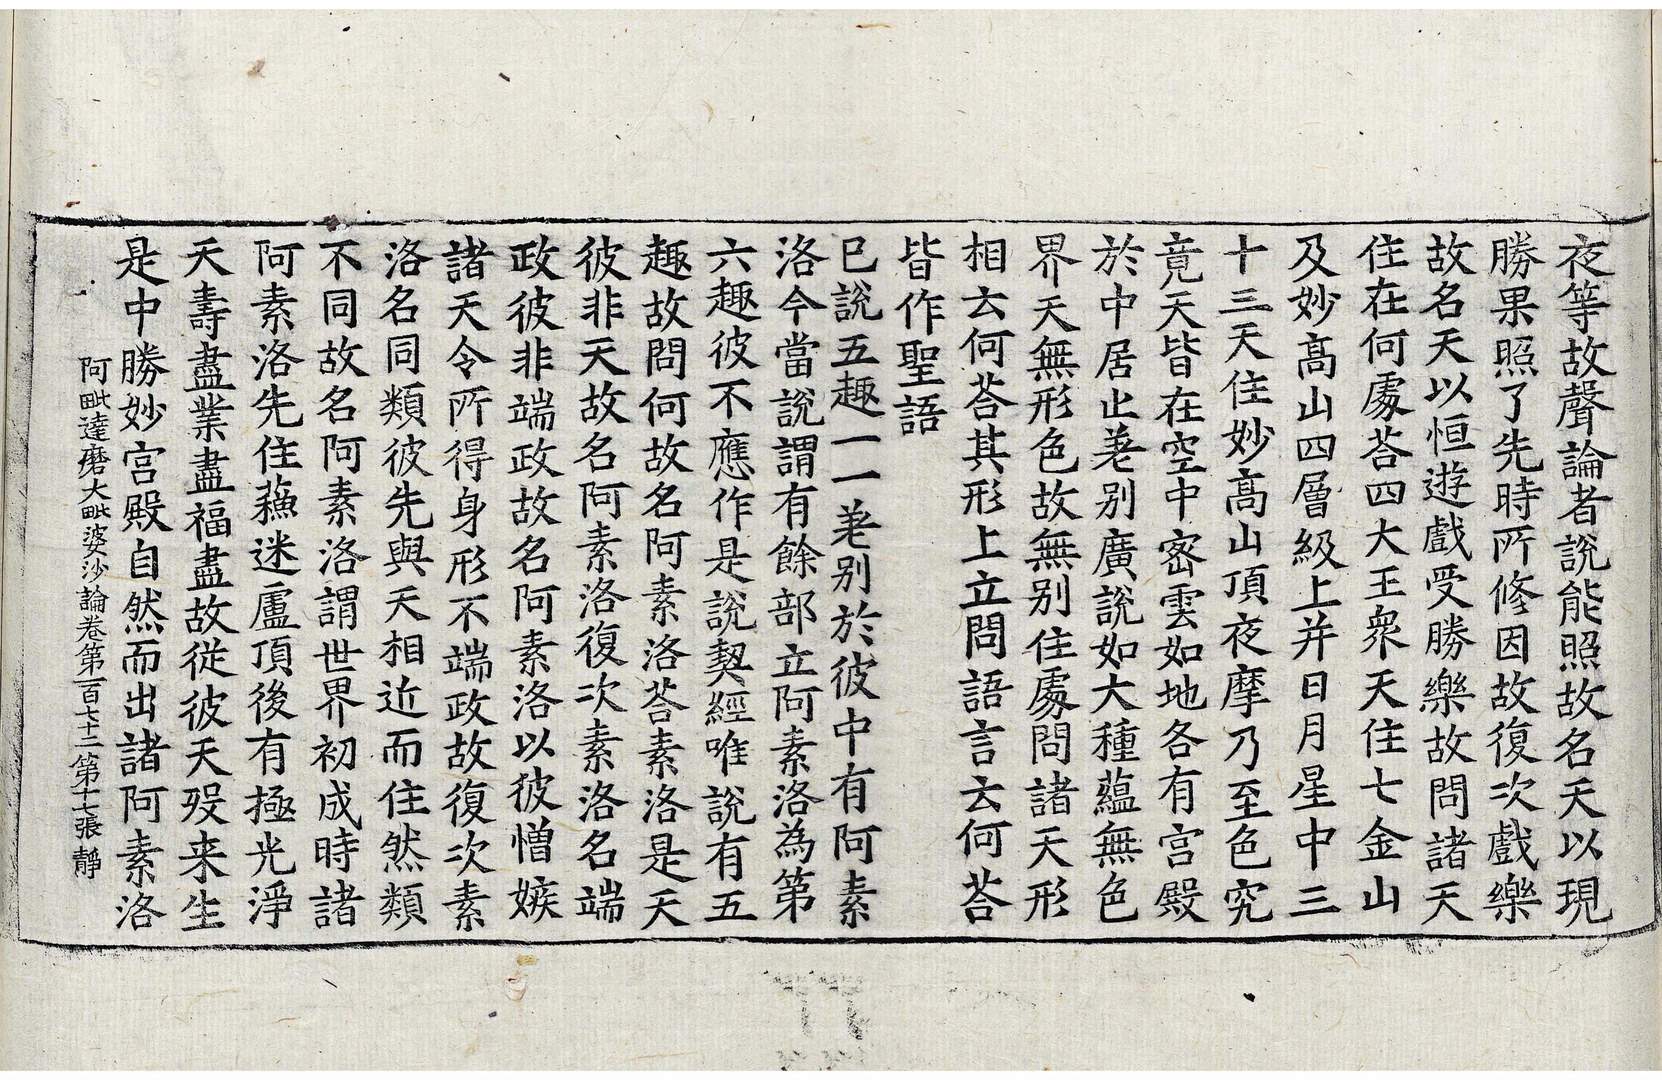 夜等故聲論者說能照故名天以現
勝果照了先時所修因故復次戲樂
故名天以恒遊戲受勝樂故問諸天
住在何處荅四大王衆天住七金山
及妙高山四層級上并日月星中三
十三天住妙高山頂夜摩乃至色究
竟天皆在空中密雲如地各有宮殿
於中居止差别廣說如大種蘊無色
界天無形色故無别住處問諸天形
相云何荅其形上立問語言云何荅
皆作聖語
已說五趣一一差别於彼中有阿素
洛今當說謂有餘部立阿素洛為第
六趣彼不應作是說契經唯說有五
趣故問何故名阿素洛荅素洛是天
彼非天故名阿素洛復次素洛名端
政彼非端政故名阿素洛以彼憎嫉
諸天令所得身形不端政故復次素
洛名同類彼先與天相近而住然類
不同故名阿素洛謂世界初成時諸
阿素洛先住蘇迷盧頂後有極光淨
天壽盡業盡福盡故從彼天歿来生
是中勝妙宮殿自然而出諸阿素洛
阿毗達磨大毗婆沙論卷第一百七十二 第十七張 靜